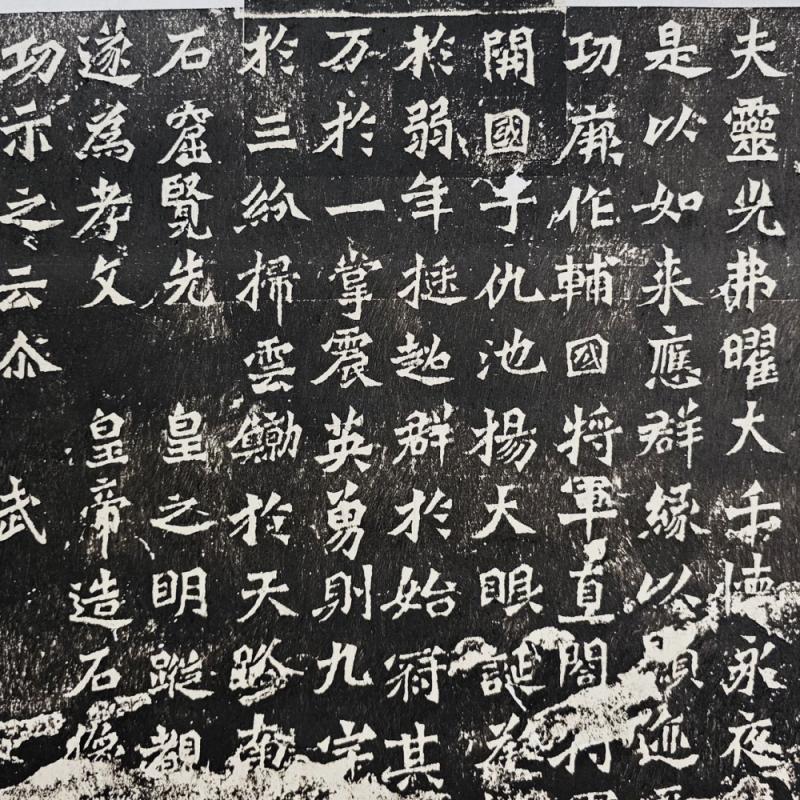 夫靈光弗曜大千懷永夜
是以如来應群縁以顯迹
功厥作輔國将軍直閤将
開國子仇池楊大眼誕承
於弱年挺超群於始冠其
万於一掌震英勇則九宇
於三紛掃雲鯨於天路南
石窟覽先 皇之明蹤覩
遂為孝文 皇帝造石像
功示之云尒 武